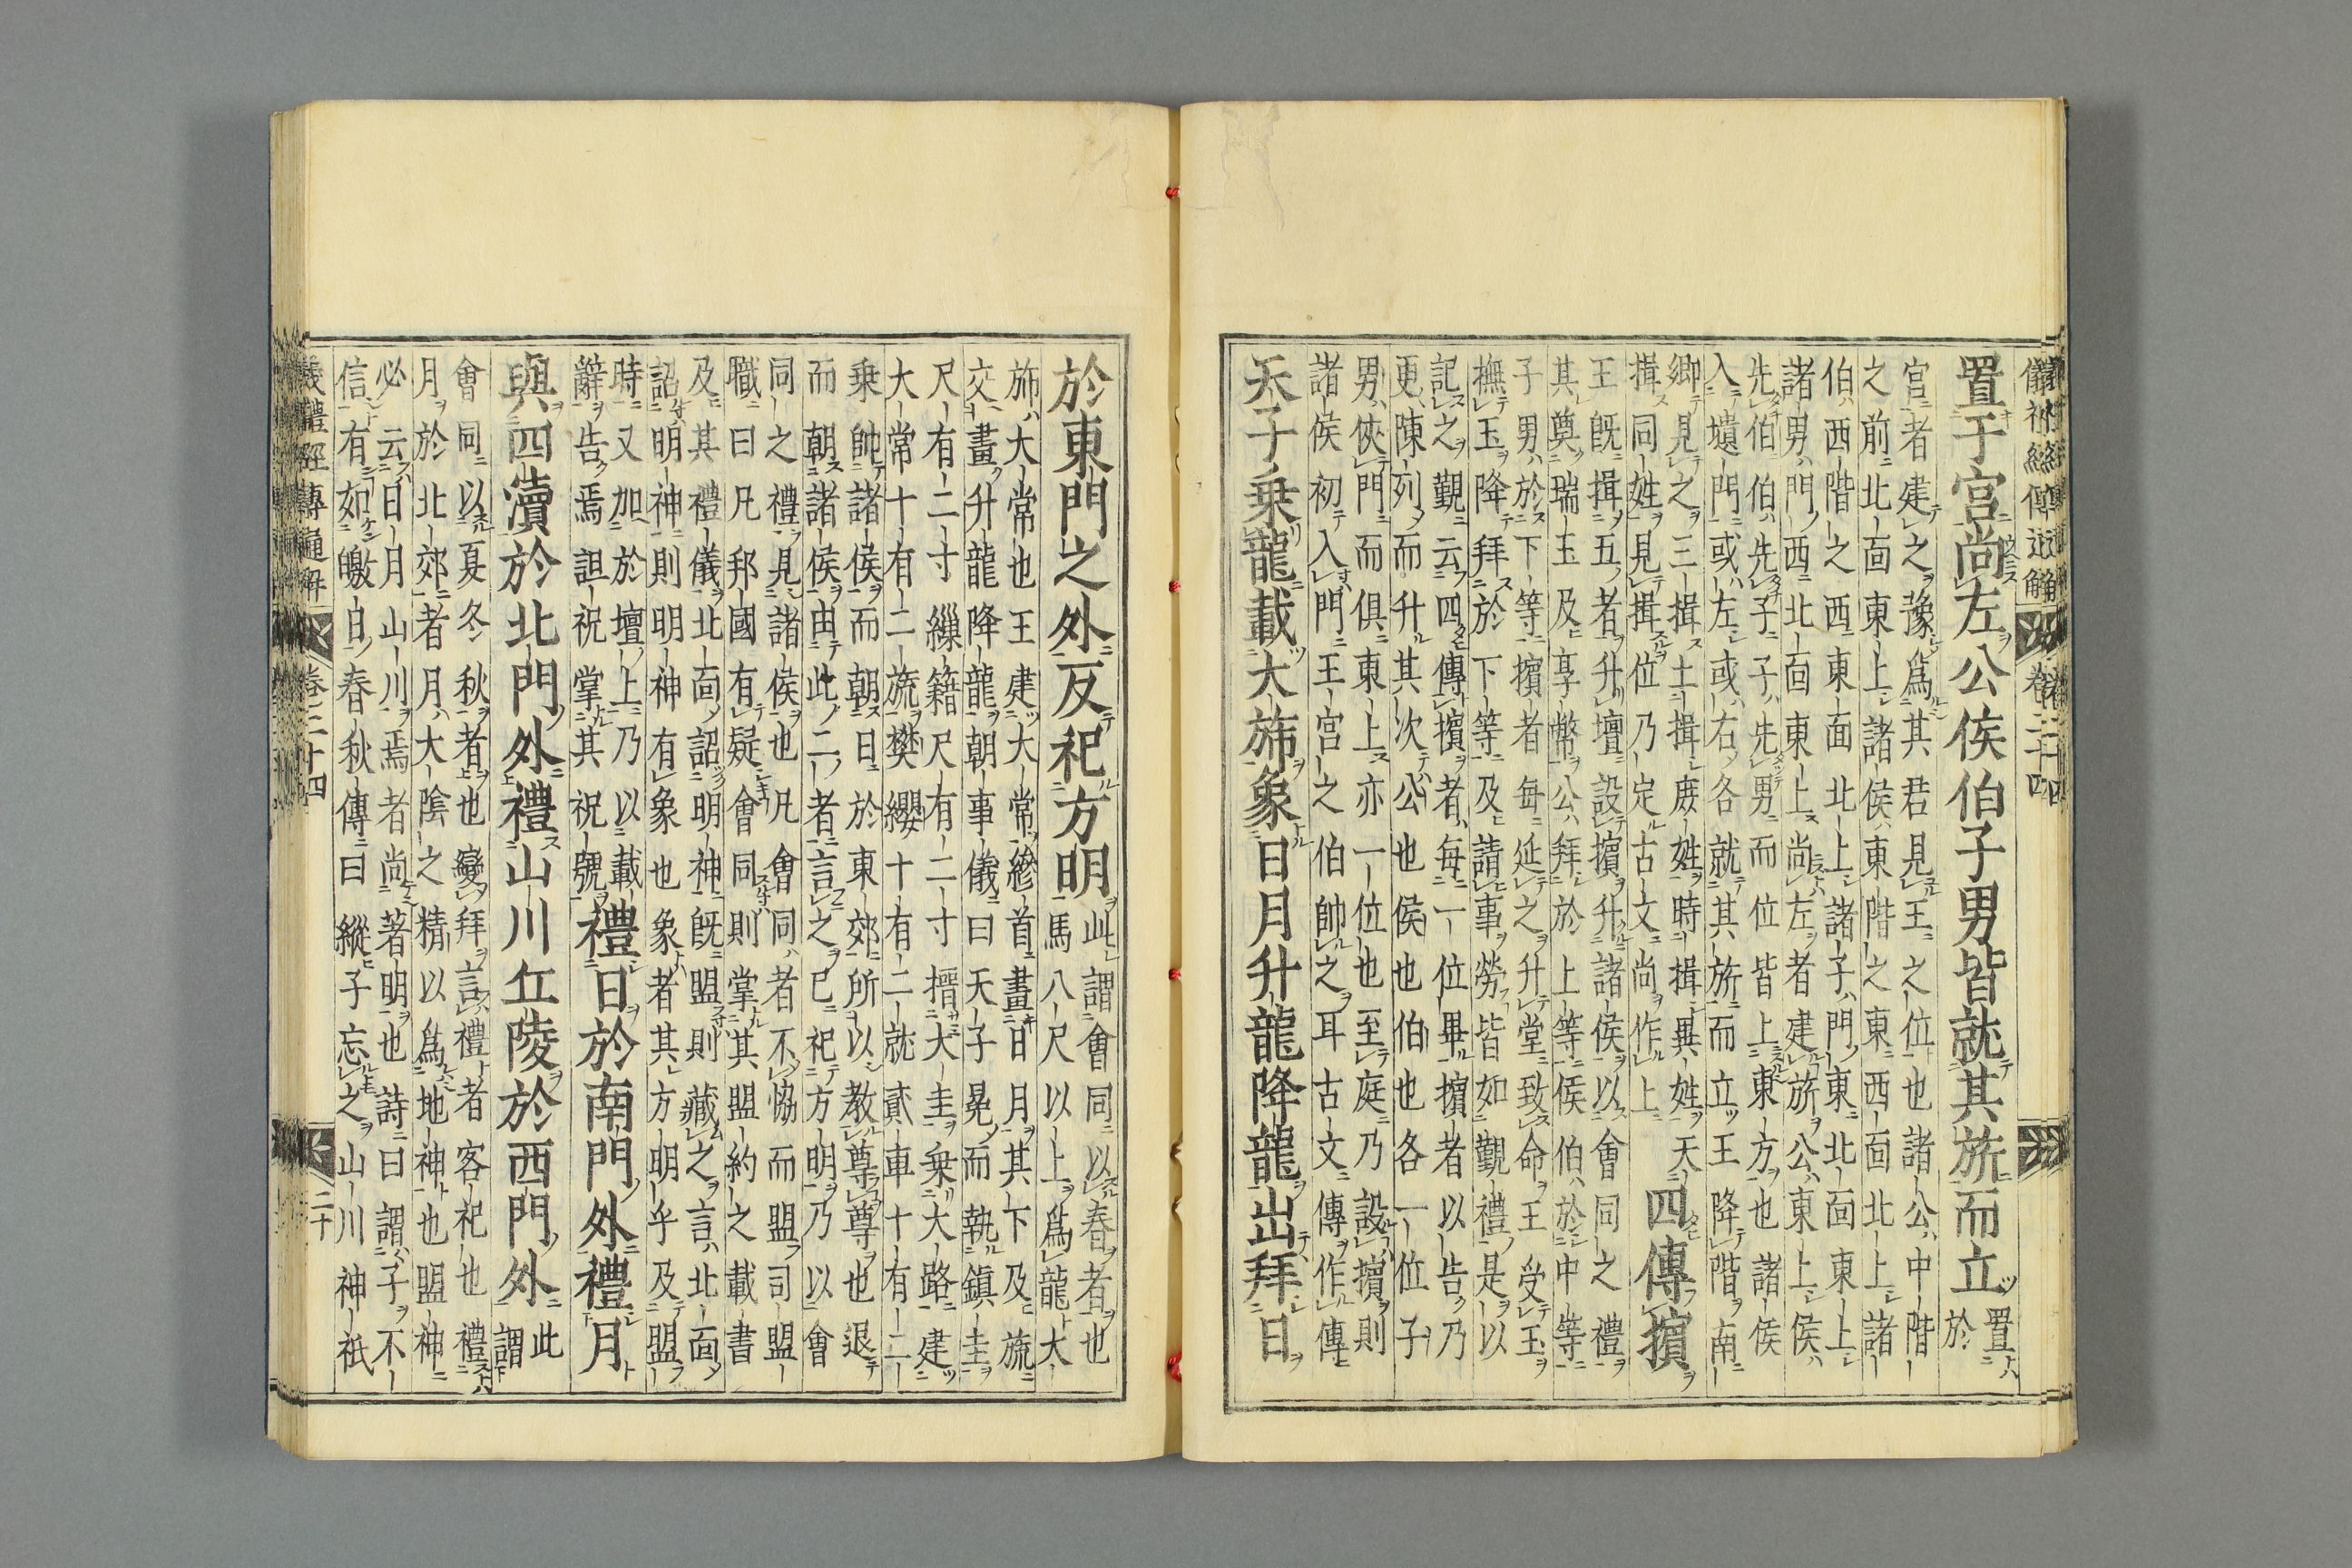 儀禮經傳通解 卷二十四
置于宮尚左公侯伯子男皆就其旂而立 置
於
宮者建之豫爲其君見王之位也諸公中階
之前北面東上諸侯東階之東西面北上諸
伯西階之西東面北上諸子門東北面東上
諸男門西北面東上尚左者建旂公東上侯
先伯伯先子子先男而位皆上東方也諸侯
入壝門或左或右各就其旂而立王降階南
鄉見之三揖土揖庶姓時揖異姓天
揖同姓見揖位乃定古文尚作上
四傳擯
王既揖五者升壇設擯升諸侯以會同之禮
其奠瑞玉及享幣公拜於上等侯伯於中等
子男於下等擯者每延之升堂致命王受玉
撫玉降拜於下等及請事勞皆如覲禮是以
記之覲云四傳擯者每一位畢擯者以告乃
更陳列而升其次公也侯也伯也各一位子
男俠門而俱東上亦一位也至庭乃設擯則
諸侯初入門王宮之伯帥之耳古文傳作傅
天子乗龍載大斾象日月升龍降龍出拜日
於東門之外反祀方明
此謂會同以春者也
馬八尺以上爲龍大
斾大常也王建大常縿首畫日月其下及旒
交畫升龍降龍朝事儀曰天子冕而執鎮圭
尺有二寸繅籍尺有二寸搢大圭乗大路建
大常十有二旒樊纓十有二就貳車十有二
乗帥諸侯而朝日於東郊所以教尊尊也退
而朝諸侯由此二者言之已祀方明乃以會
同之禮見諸侯也凡會同者不協而盟司盟
職曰凡邦國有疑會同則掌其盟約之載書
及其禮儀北面詔明神既盟則藏之言北面
詔明神則明神有象也象者其方明乎及盟
時又加於壇上乃以載
辭告焉詛祝掌其祝號
禮日於南門外禮月
與四瀆於北門外禮山川丘陵於西門外
此
謂
會同以夏冬秋者也變拜言禮者客祀也禮
月於北郊者月大陰之精以爲地神也盟神
必云日月山川焉者尚著明也詩曰謂予不
信有如皦日春秋傳曰縱子忘之山川神祇
儀禮經傳通解 卷二十四 二十